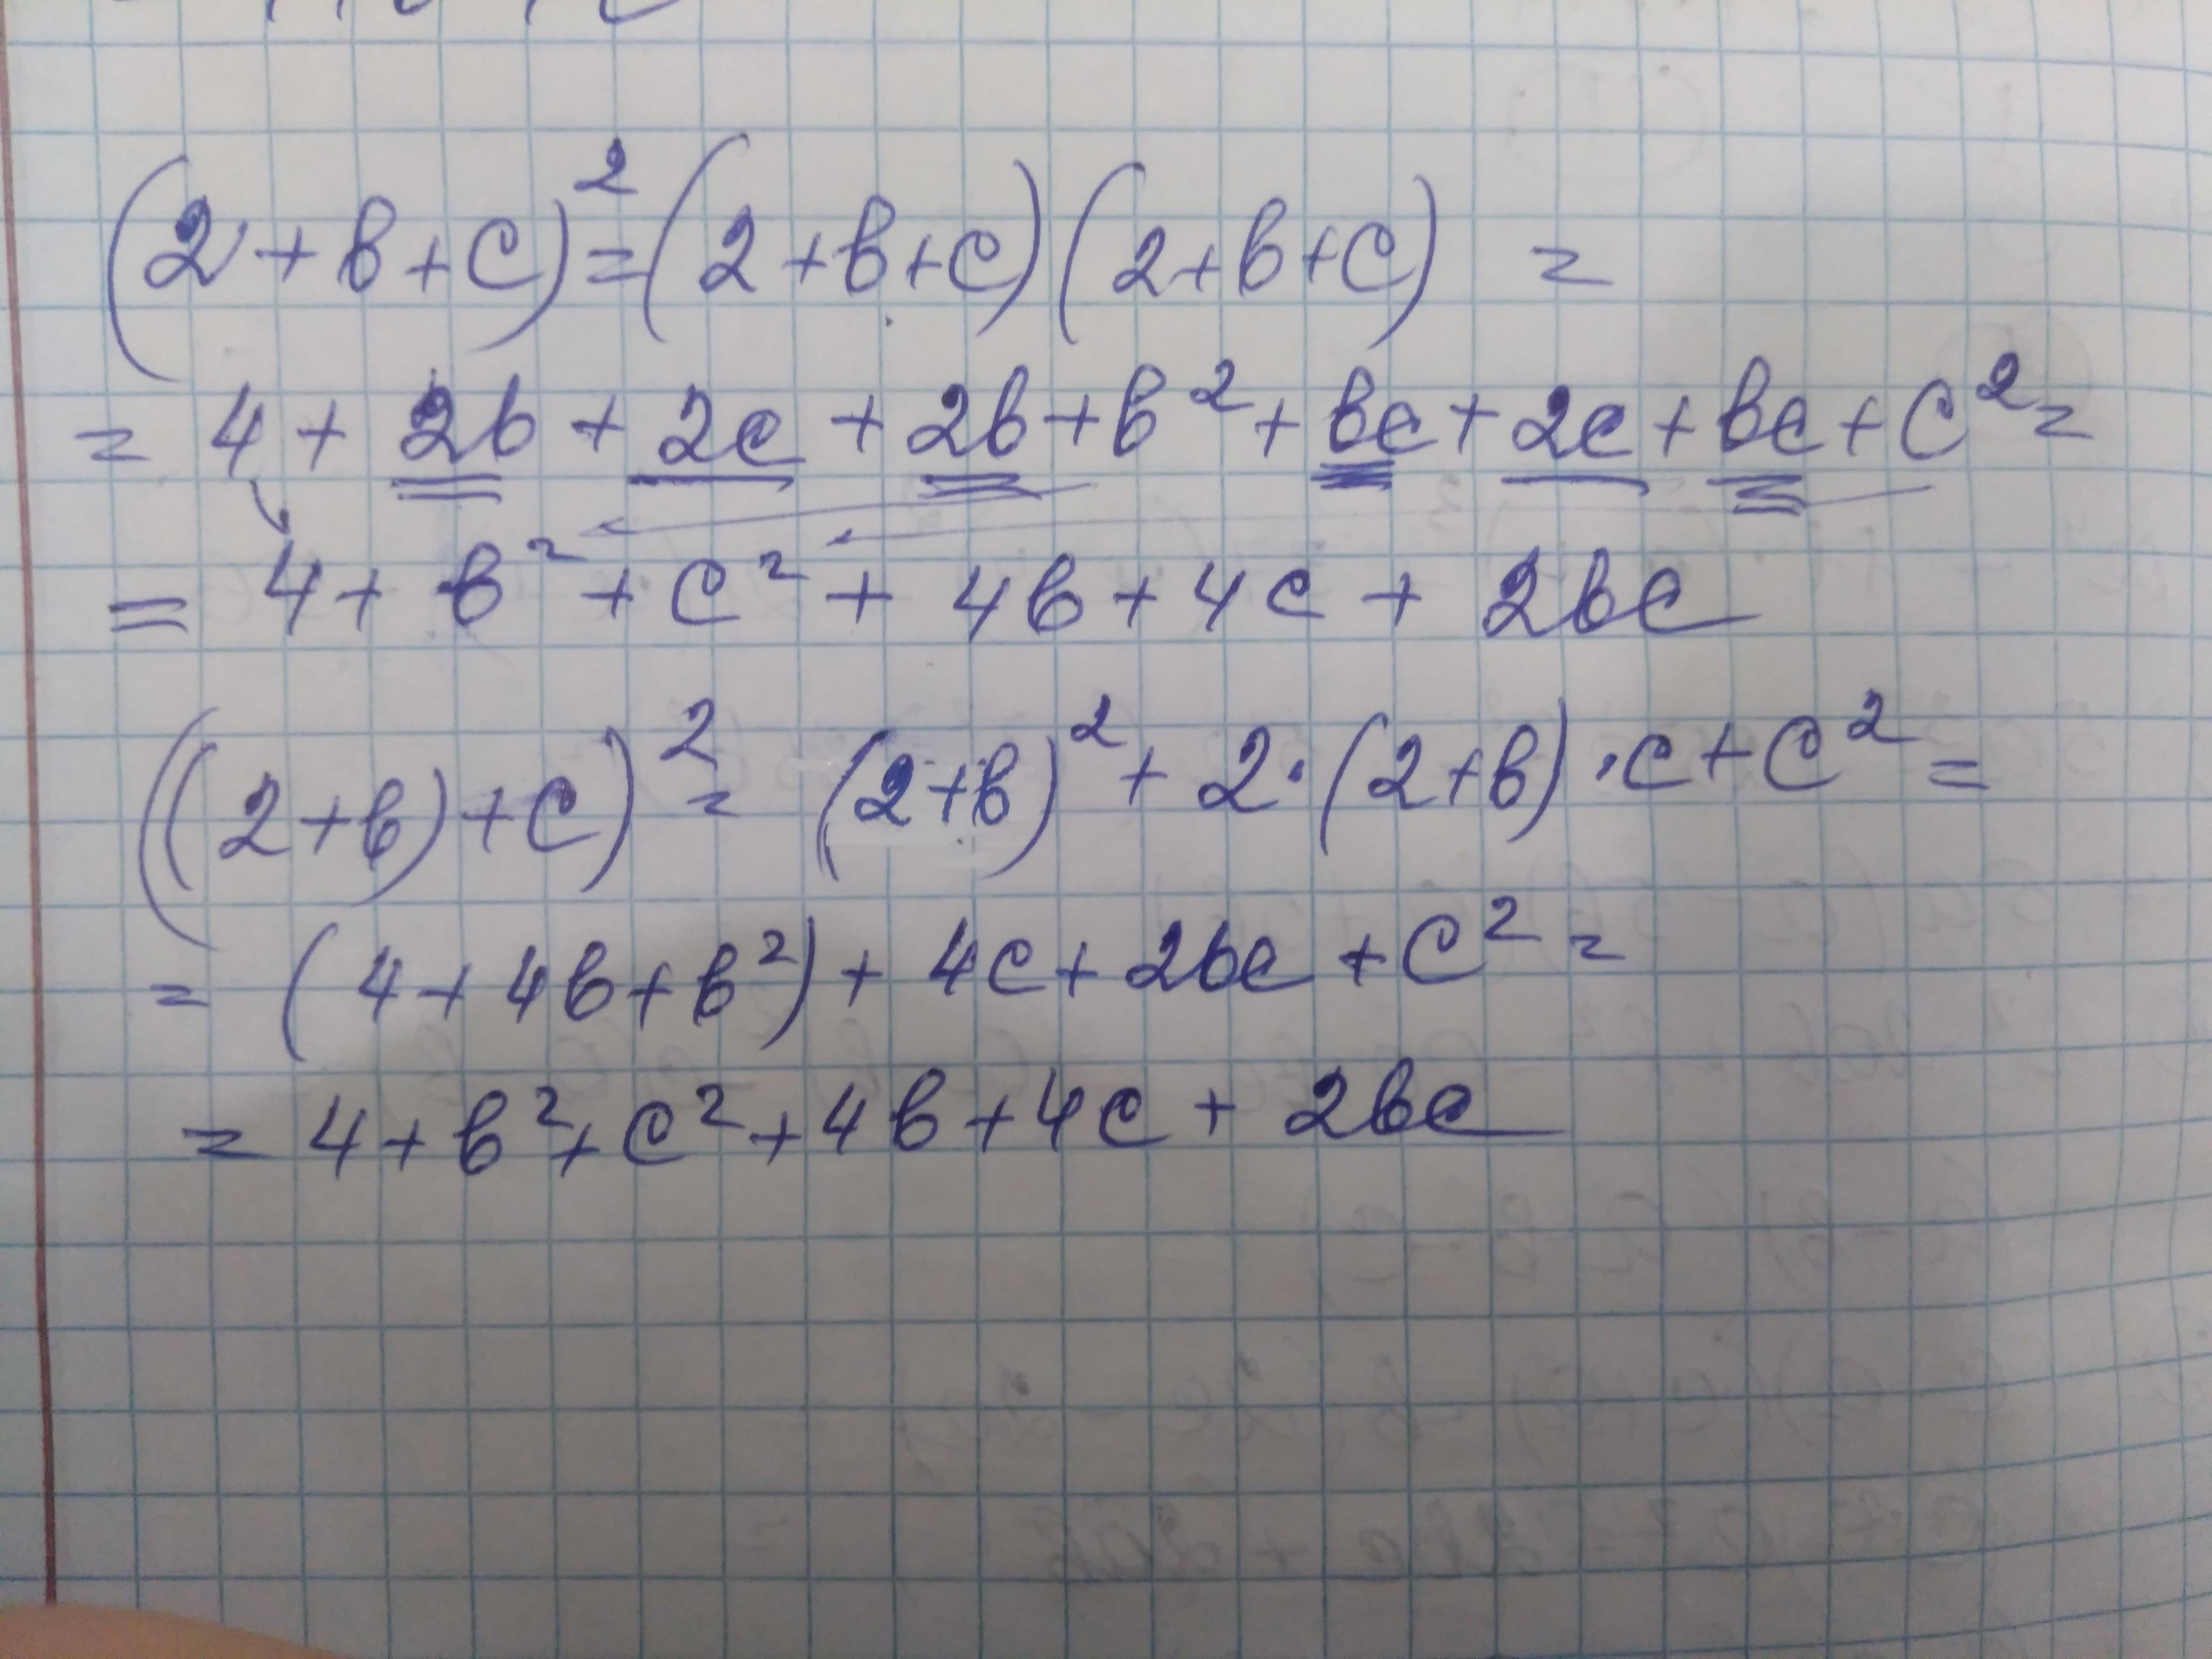 (2+b+c)²=(2+b+c)(2+b+c) =
= 4 + 2b + 2c + 2b + b² + bc + 2c + bc + c² =
= 4 + b² + c² + 4b + 4c + 2bc
((2+b)+c)² = (2+b)² + 2·(2+b)·c + c² =
= (4 + 4b + b²) + 4c + 2bc + c² =
= 4 + b² + c² + 4b + 4c + 2bc